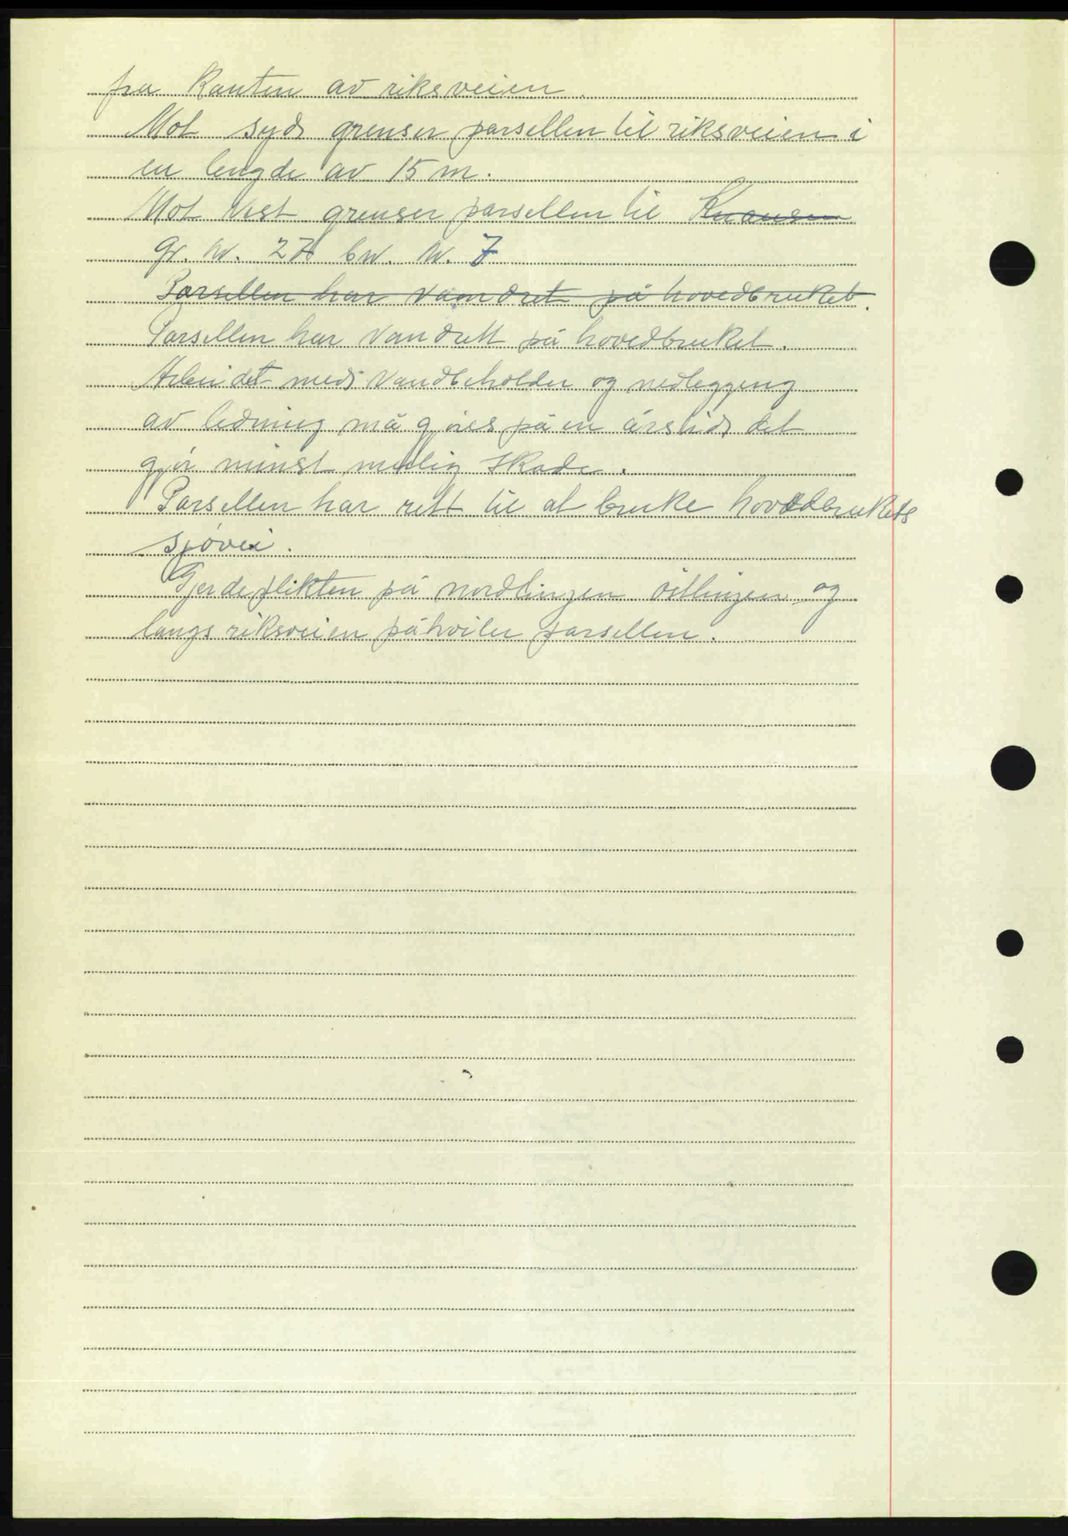 fra kanten av riksveien.
Mot syd grenser parsellen til riksveien i
en lengde av 15 m.
Mot vest grenser parsellen til
gr. nr. 27 br. nr. 7
Parsellen har vandret på hovedbruket.
Parsellen har vandrett på hovedbruket.
Arbeidet med vandbeholder og nedlegging
av ledning må gjøres på en årstid det
gjør minst mulig skade.
Parsellen har rett til at bruke hovedbrukets
sjøvei.
Gjerdeplikten på nordlinjen og
langs riksveien påhviler parsellen.